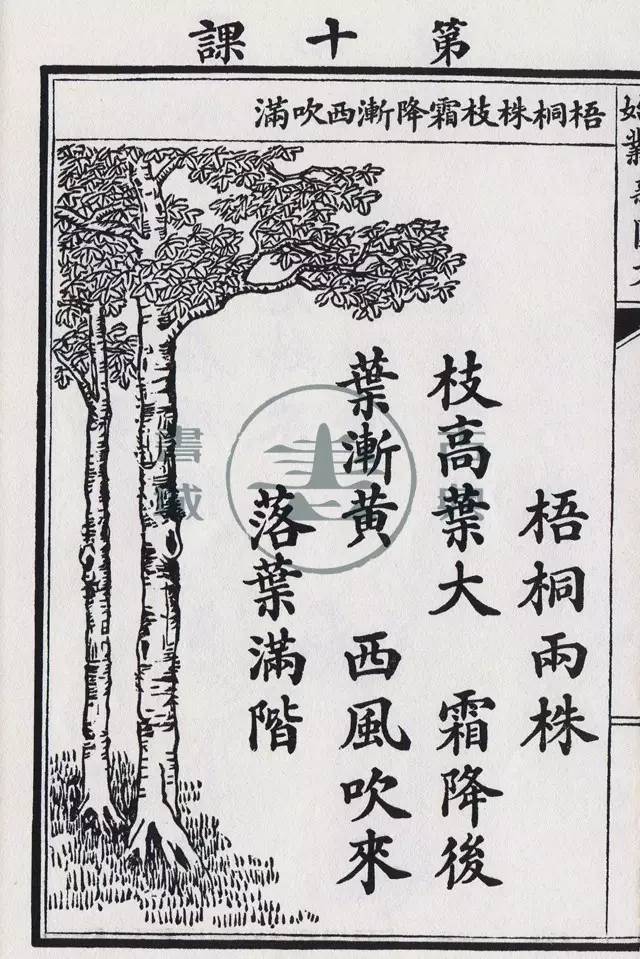 第十課
梧桐株枝霜降漸西吹滿
梧桐兩株
枝高葉大　霜降後
葉漸黃　西風吹來
落葉滿階
書城